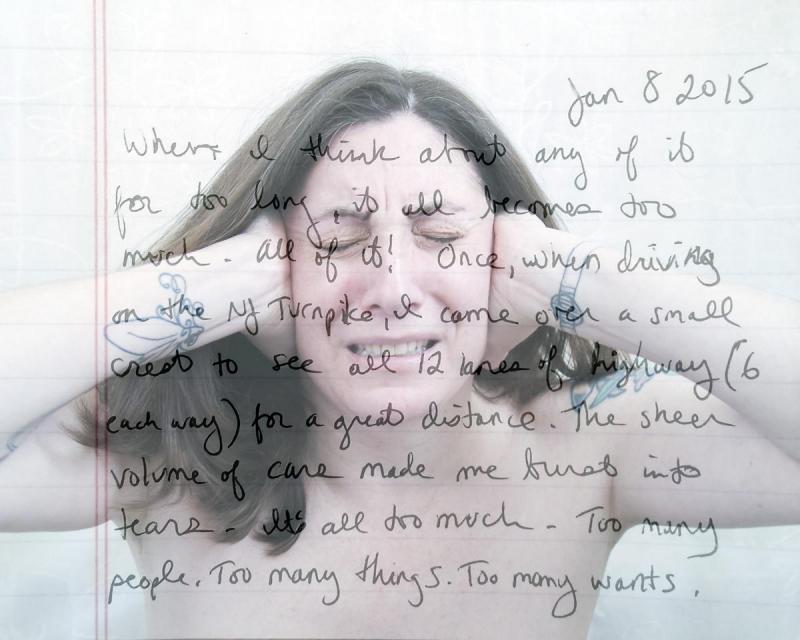 Jan 8 2015
When I think about any of it
for too long, it all becomes too
much. All of it! Once, when driving
on the NJ Turnpike, I came over a small
crest to see all 12 lanes of highway (6
each way) for a great distance. The sheer
volume of cars made me burst into
tears. It's all too much. Too many
people. Too many things. Too many wants.